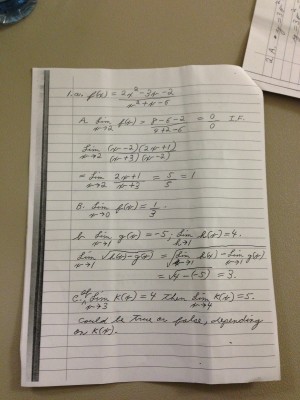 1. a. f(x) = 2x² - 3x - 2 / x² + x - 6
A. lim x→2 f(x) = 8 - 6 - 2 / 4 + 2 - 6 = 0/0 I.F.
lim x→2 (x - 2)(2x + 1) / (x + 3)(x - 2)
= lim x→2 2x + 1 / x + 3 = 5/5 = 1
B. lim x→0 f(x) = 1/3.
b. lim x→1 g(x) = -5; lim h(x) = 4.
lim x→1 √h(x) - g(x) = √lim x→1 h(x) - lim x→1 g(x)
= √4 - (-5) = 3.
c. If lim x→3 K(x) = 4 then lim x→4 K(x) = 5.
could be true or false, depending
on K(x).